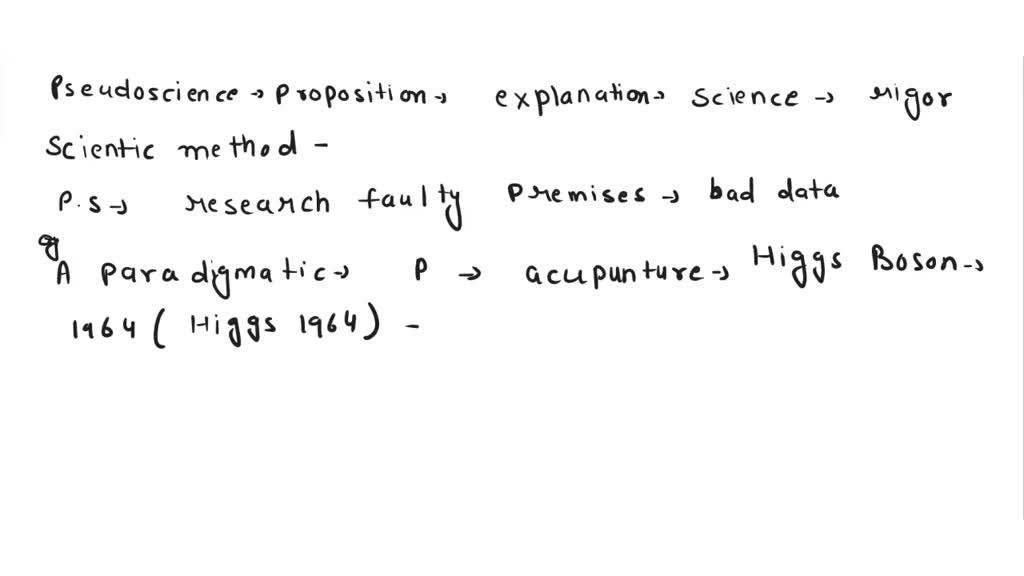 Pseudoscience → proposition → explanation → science → rigor
Scientic method -
P.S → research faulty premises → bad data
eg
A paradigmatic → P → acupunture → Higgs Boson →
1964 ( Higgs 1964 ) -